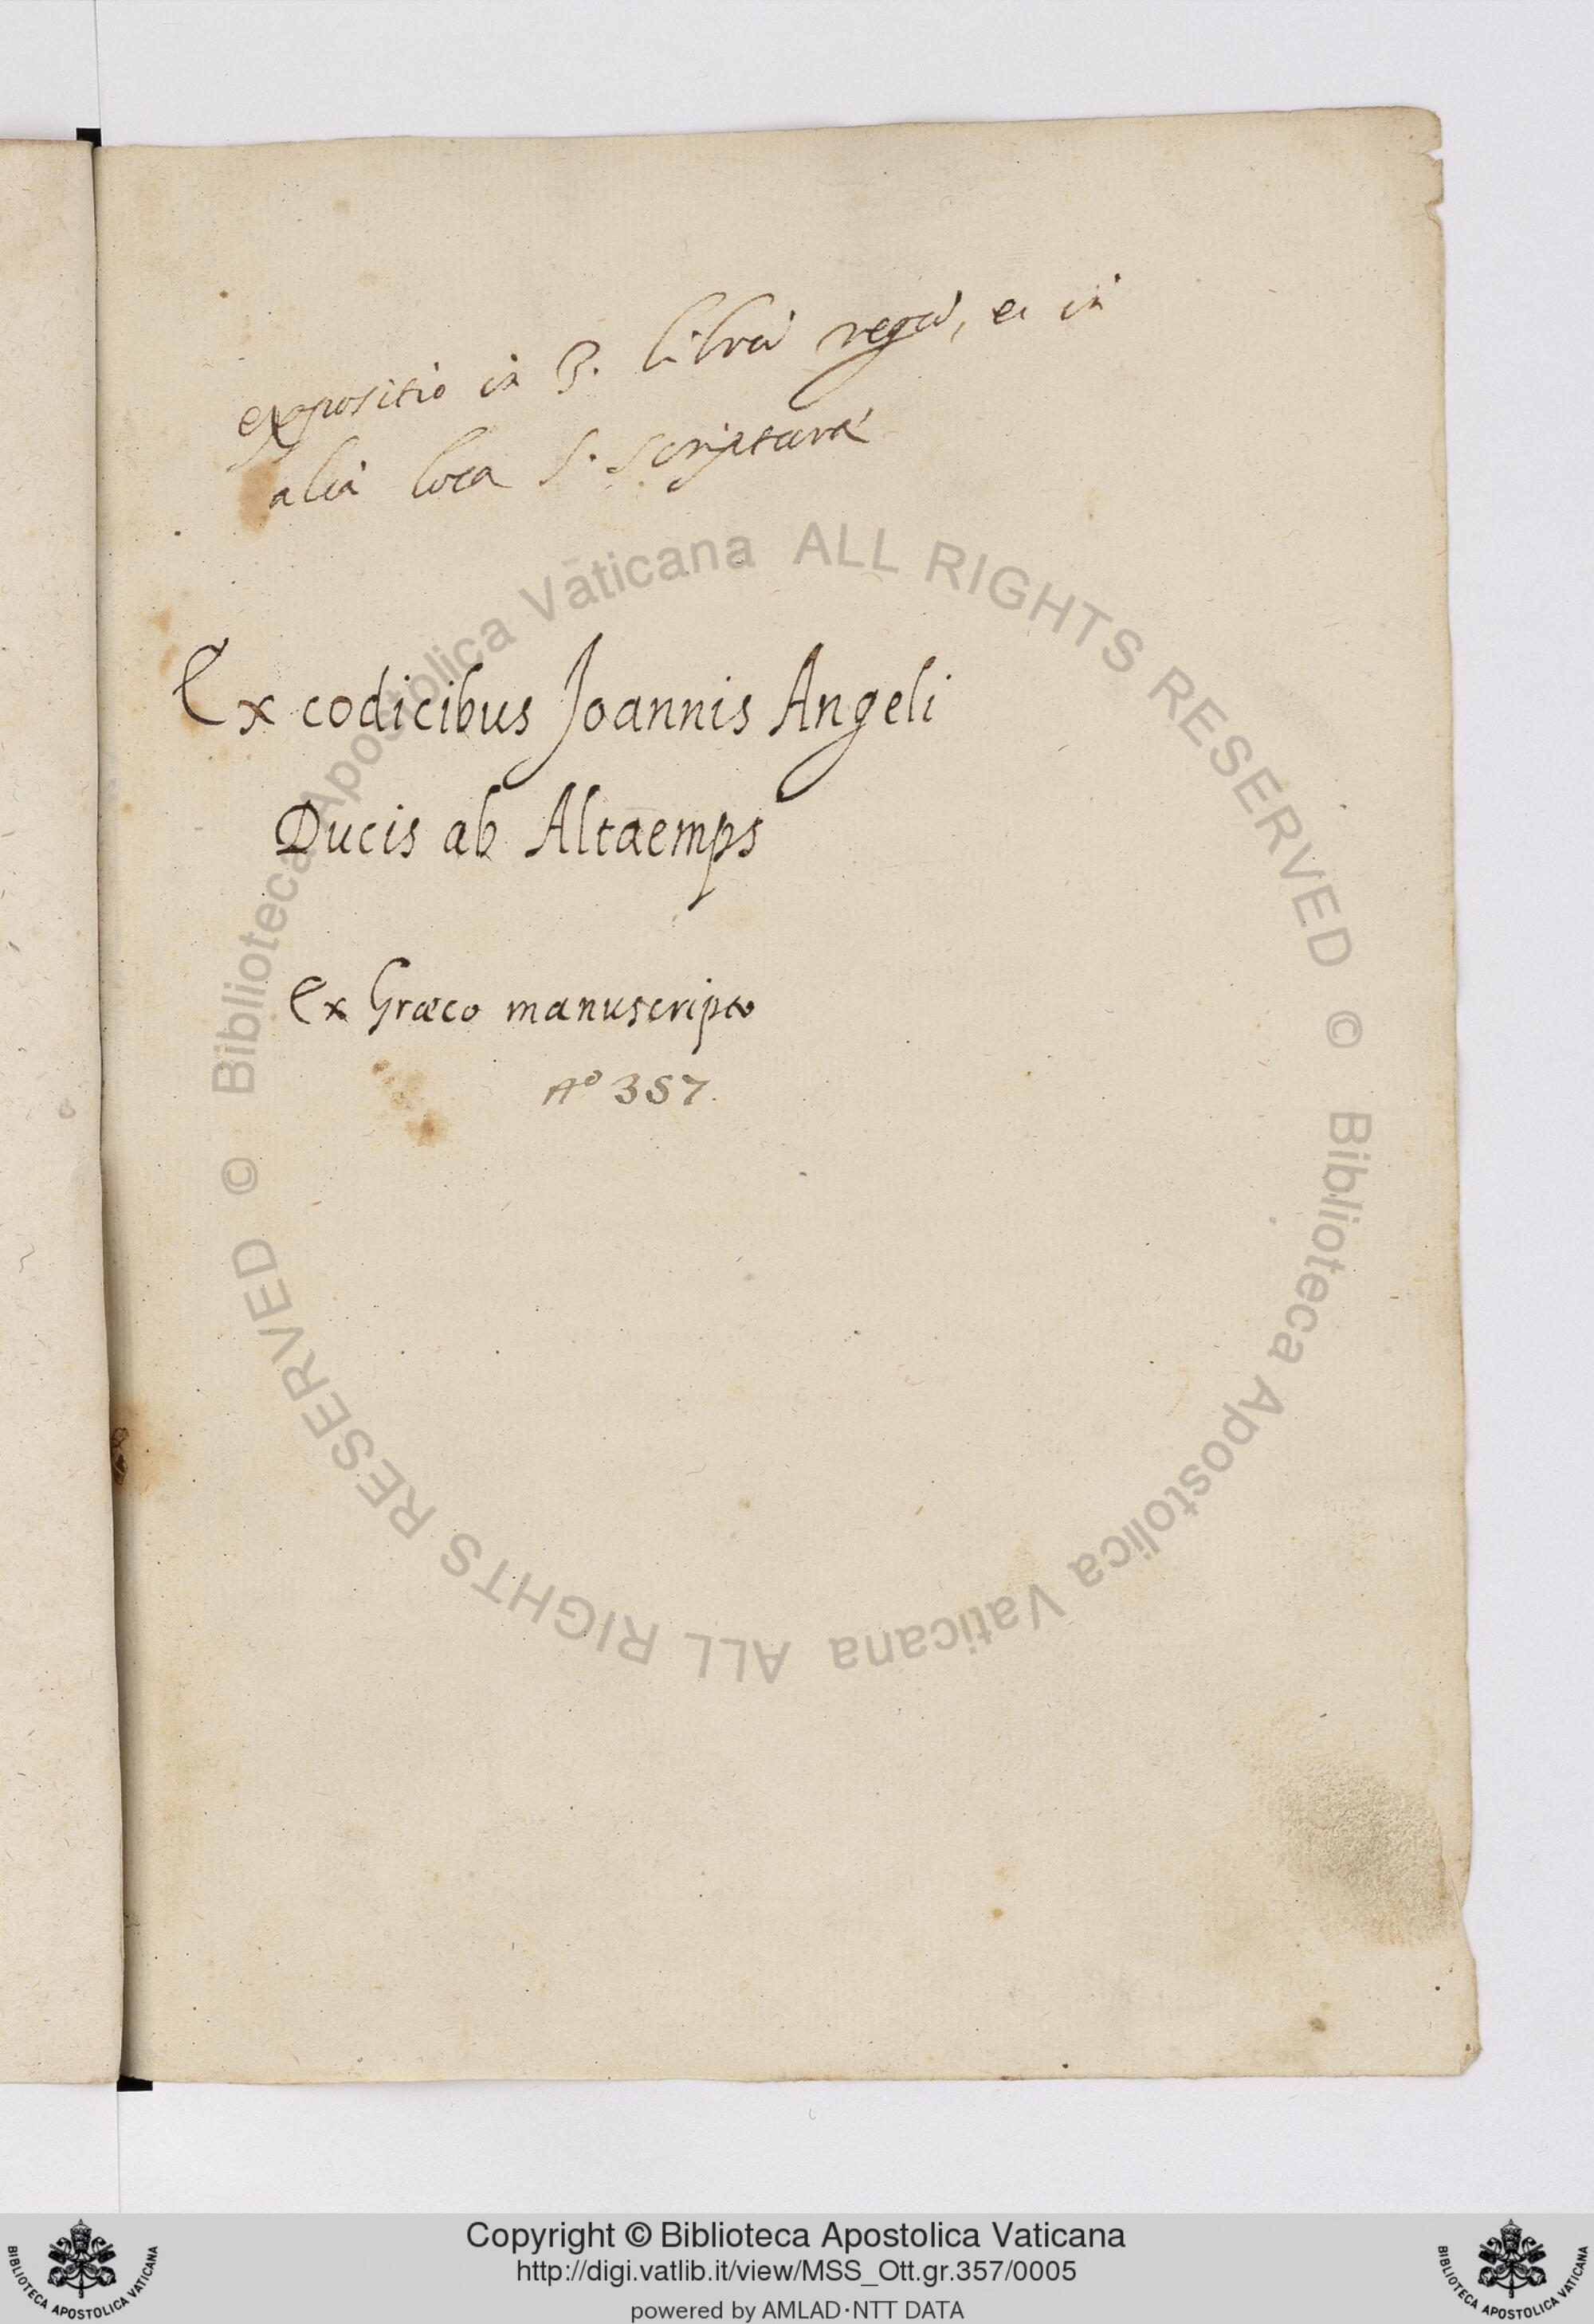 expositio in 3. librũ regũ, et in
alia loca S. scripturæ
Ex codicibus Joannis Angeli
Ducis ab Altaemps
Ex Græco manuscripto
Aº 357.
© Biblioteca Apostolica Vaticana ALL RIGHTS RESERVED
© Biblioteca Apostolica Vaticana ALL RIGHTS RESERVED
Copyright © Biblioteca Apostolica Vaticana
http://digi.vatlib.it/view/MSS_Ott.gr.357/0005
powered by AMLAD·NTT DATA
BIBLIOTECA APOSTOLICA VATICANA
BIBLIOTECA APOSTOLICA VATICANA